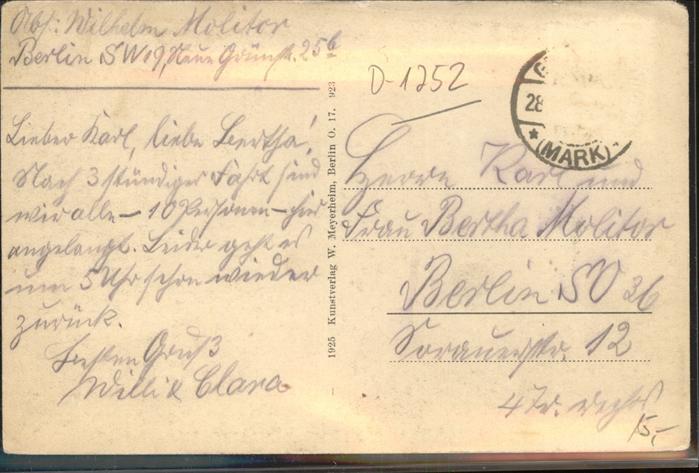 Abs: Wilhelm Molitor
Berlin SW 19, Neue Grünstr. 25b
Lieber Karl, liebe Bertha!
Nach 3 stündiger Fahrt sind
wir alle – 10 Personen – hier
angelangt. Leider geht es
um 5 Uhr schon wieder
zurück.
Besten Gruß
Willi & Clara
1925 Kunstverlag W. Meyerheim, Berlin O. 17. 923
D-1252
28
* (MARK)
Herrn Karl und
Frau Bertha Molitor
Berlin SO 36
Sorauerstr. 12
4 Tr. rechts
15,-